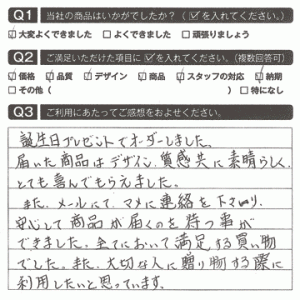 Q1 当社の商品はいかがでしたか？（☑を入れてください。）
☑大変よくできました □よくできました □頑張りましょう
Q2 ご満足いただけた項目に☑を入れてください。（複数回答可）
☑価格 ☑品質 ☑デザイン ☑商品 ☑スタッフの対応 ☑納期
□その他（ ）□特になし
Q3 ご利用にあたってご感想をおよせください。
誕生日プレゼントでオーダーしました。
届いた商品はデザイン、質感共に素晴らしく、
とても喜んでもらえました。
また、メールにて、マメに連絡を下さり
安心して商品が届くのを待つ事が
できました。全てにおいて満足する買い物
でした。また、大切な人に贈り物する際に
利用したいと思っています。